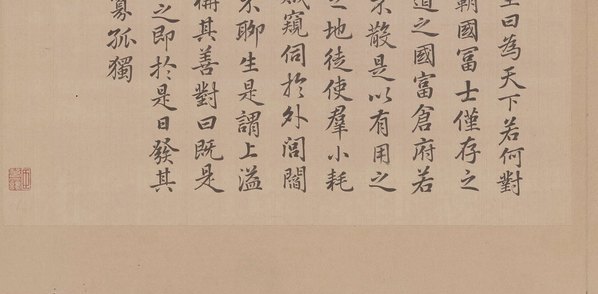 曰為天下若何對
朝國冨士僅存之
道之國富倉府若
不散是以有用之
之地徒使羣小耗
窺伺於外閭閻
不聊生是謂上溢
稱其善對曰既是
之即於是日發其
寡孤獨